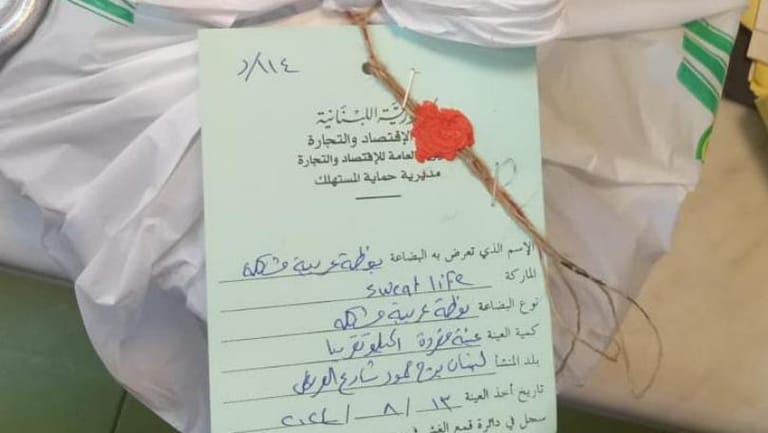 ٨١٤/د
ـورية اللبنانية
الإقتصاد والتجارة
العامة للاقتصاد والتجارة
مديرية حماية المستهلك
الإسم الذي تعرض به البضاعة بوظة عربية مشكلة
الماركة sweat life
نوع البضاعة بوظة عربية مشكلة
كمية العينة عينة مفردة الكيلو تقريبا
بلد المنشأ لبنان برج حمود شارع
تاريخ أخذ العينة ١٣ / ٨ /
سجل في دائرة قمع الغش